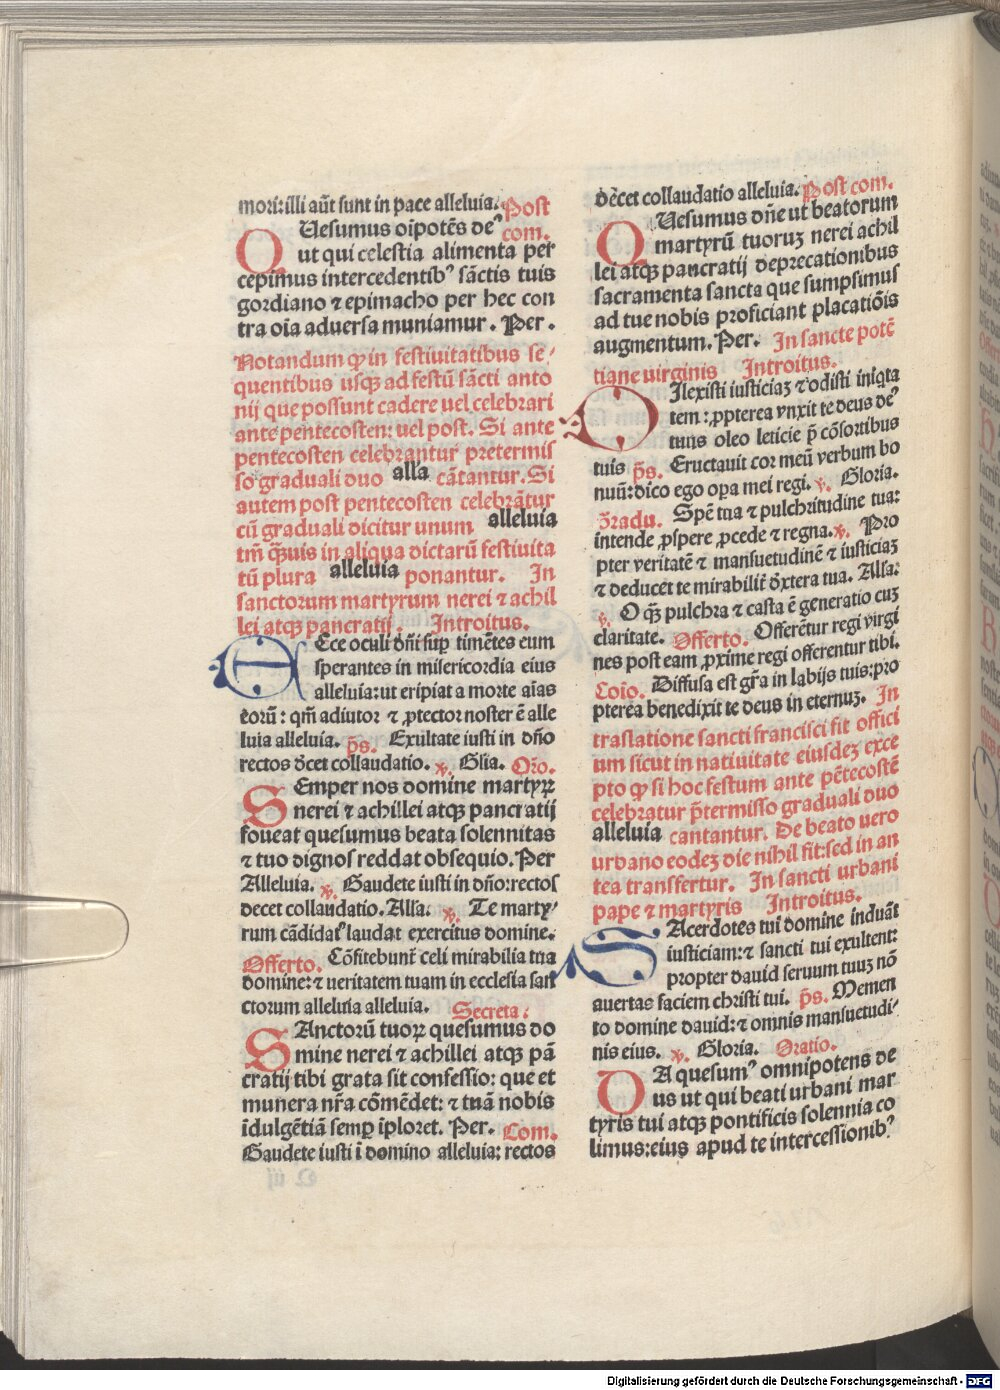 mori: illi aūt sunt in pace alleluia. Post
QUesumus oīpotēs deꝰ com.
ut qui celestia alimenta per
cepimus intercedentibꝰ sāctis tuis
gordiano ⁊ epimacho per hec con
tra oīa aduersa muniamur. Per.
Notandum ꝙ in festiuitatibus se
quentibus usqꝫ ad festū sācti anto
nij que possunt cadere uel celebrari
ante pentecosten: uel post. Si ante
pentecosten celebrantur pretermis
so graduali duo alla cātantur. Si
autem post pentecosten celebrātur
cū graduali dicitur unum alleluia
tm̄ qꝫuis in aliqua dictarū festiuita
tū plura alleluia ponantur. In
sanctorum martyrum nerei ⁊ achil
lei atqꝫ pancratij. Introitus.
ECce oculi dn̄i suꝑ timētes eum
sperantes in misericordia eius
alleluia: ut eripiat a morte aīas
eorū: qm̄ adiutor ⁊ ꝓtector noster ē alle
luia alleluia. p̄s. Exultate iusti in dn̄o
rectos d̄cet collaudatio. ꝟ. Glīa. Or̄o.
SEmper nos domine martyꝝ
nerei ⁊ achillei atqꝫ pancratij
foueat quesumus beata solennitas
⁊ tuo dignos reddat obsequio. Per
Alleluia. ꝟ. Gaudete iusti in dn̄o: rectos
decet collaudatio. Alla. ꝟ. Te marty
rum cādidatꝰ laudat exercitus domine.
Offerto. Cōfitebunt̄ celi mirabilia tua
domine: ⁊ ueritatem tuam in ecclesia san
ctorum alleluia alleluia. Secreta:
SAnctorū tuoꝝ quesumus do
mine nerei ⁊ achillei atqꝫ pā
cratij tibi grata sit confessio: que et
munera nr̄a cōmēdet: ⁊ tuā nobis
īdulgētiā semꝑ īploret. Per. Com.
Gaudete iusti ī domino alleluia: rectos
dēcet collaudatio alleluia. Post com.
QUesumus dn̄e ut beatorum
martyrū tuoruꝫ nerei achil
lei atqꝫ pancratij deprecationibus
sacramenta sancta que sumpsimus
ad tue nobis proficiant placatiōis
augmentum. Per. In sancte potē
tiane uirginis Introitus.
DIlexisti iusticiaꝫ ⁊ odisti iniqta
tem: ꝓpterea vnxit te deus deꝰ
tuus oleo leticie p̄ cōsortibus
tuis p̄s. Eructauit cor meū verbum bo
nuū: dico ego oꝑa mei regi. ꝟ. Gloria.
Gradu. Spē tua ⁊ pulchritudine tua:
intende ꝓspere ꝓcede ⁊ regna. ꝟ. Pro
pter veritatē ⁊ mansuetudinē ⁊ iusticiaꝫ
⁊ deducet te mirabilit̄ d̄xtera tua. Alla:
ꝟ. O qꝫ pulchra ⁊ casta ē generatio cuꝫ
claritate. Offerto. Offerētur regi virgi
nes post eam ꝓxime regi offerentur tibi.
Coīo. Diffusa est gr̄a in labijs tuis: pro
pterea benedixit te deus in eternuꝫ. In
traslatione sancti francisci fit offici
um sicut in natiuitate eiusdeꝫ exce
pto ꝙ si hoc festum ante pētecostē
celebratur p̄termisso graduali duo
alleluia cantantur. De beato uero
urbano eodeꝫ die nihil fit: sed in an
tea transfertur. In sancti urbani
pape ⁊ martyris Introitus.
SAcerdotes tui domine induāt
iusticiam: ⁊ sancti tui exultent:
propter dauid seruum tuuꝫ nō
auertas faciem christi tui. p̄s. Memen
to domine dauid: ⁊ omnis mansuetudi
nis eius. ꝟ. Gloria. Oratio.
DA quesumꝰ omnipotens de
us ut qui beati urbani mar
tyris tui atqꝫ pontificis solennia co
limus: eius apud te intercessionibꝰ
Digitalisierung gefördert durch die Deutsche Forschungsgemeinschaft - DFG